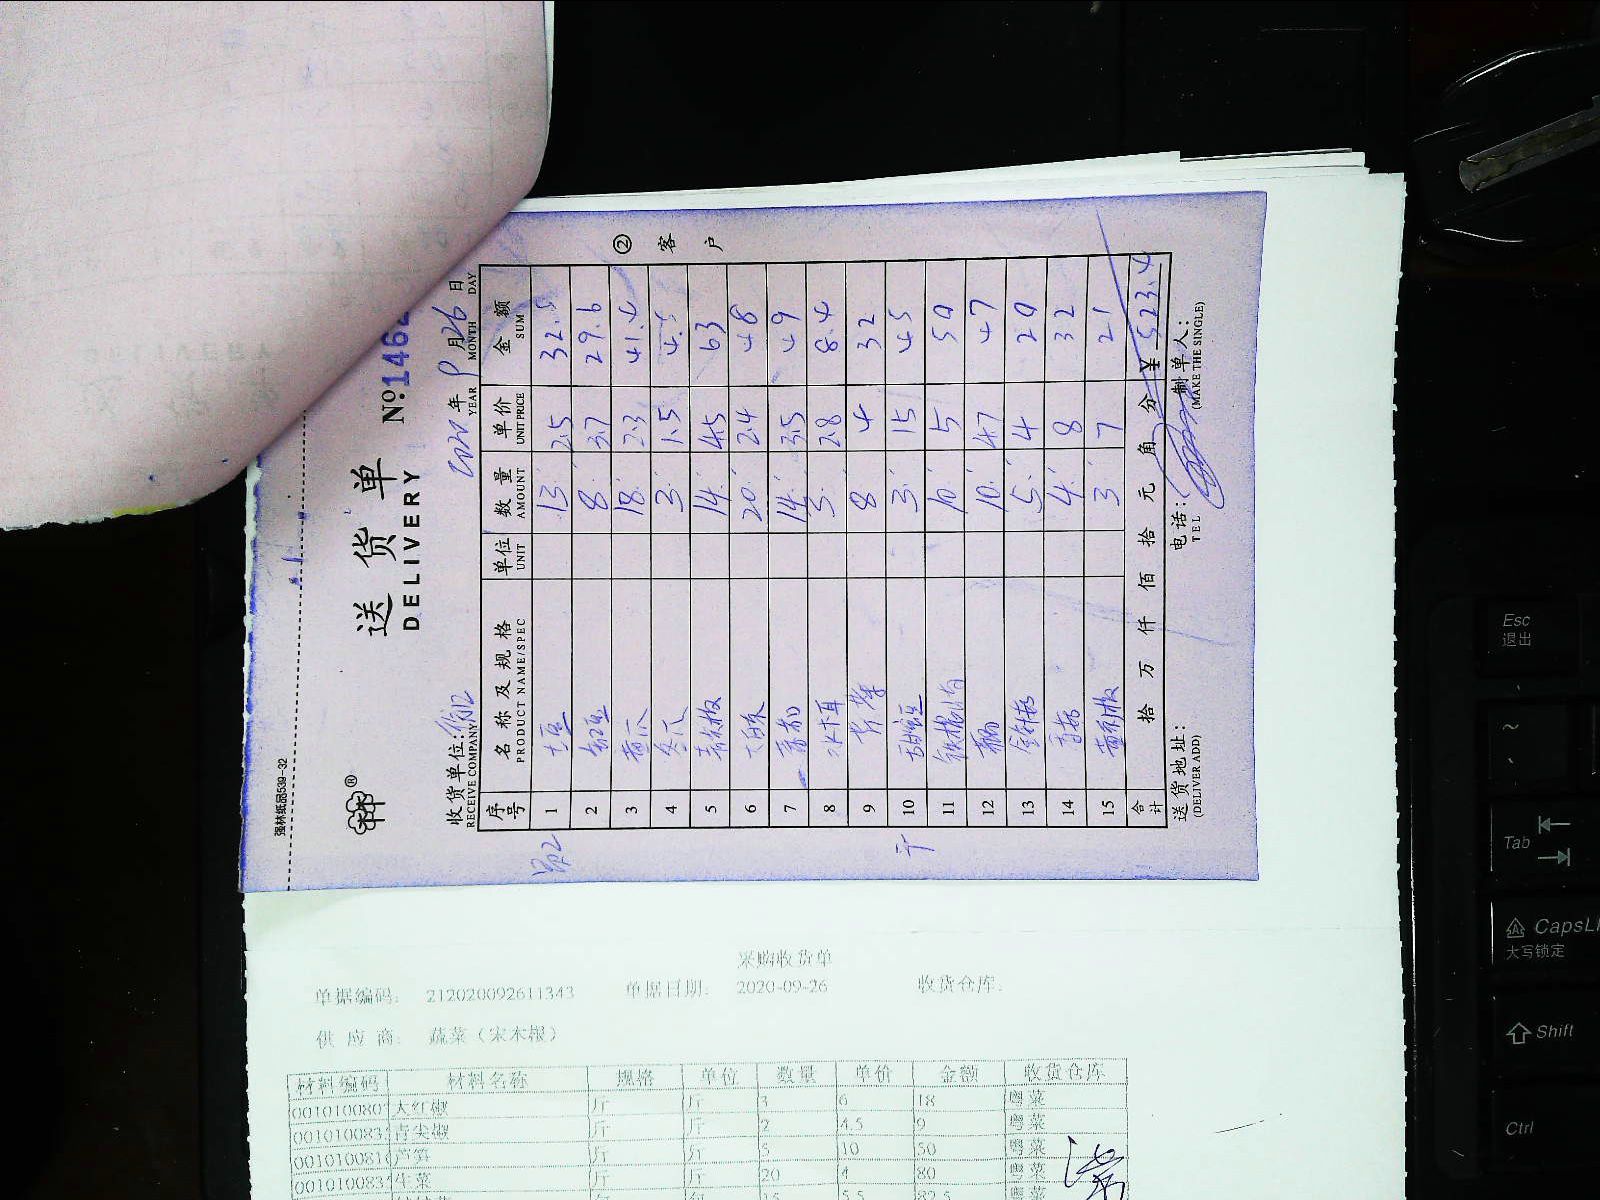 强林纸品539-32
送货单
DELIVERY
№146
收货单位:
RECEIVE COMPANY
2020 年 9 月 26 日
YEAR MONTH DAY
② 客户
序号 名称及规格 单位 数量 单价 金额
PRODUCT NAME/SPEC UNIT AMOUNT UNIT PRICE SUM
1 土豆 13 2.5 32.5
2 8 3.7 29.6
3 18 2.3 41.4
4 冬瓜 3 1.5 4.5
5 14 4.5 63
6 20 2.4 48
7 14 3.5 49
8 水木耳 3 2.8 8.4
9 芹芽 8 4 32
10 3 15 45
11 10 5 50
12 10 4.7 47
13 5 4 20
14 香菇 4 8 32
15 3 7 21
合计 拾 万 仟 佰 拾 元 角 分 ¥ 523.4
送货地址: 电话: 制单人:
(DELIVER ADD) TEL (MAKE THE SINGLE)
斤
采购收货单
单据编码: 212020092611343 单据日期: 2020-09-26 收货仓库:
供应商: 蔬菜（宋木根）
材料编码 材料名称 规格 单位 数量 单价 金额 收货仓库
00101008 大红椒 斤 斤 3 6 18 粤菜
00101008 青尖椒 斤 斤 2 4.5 9 粤菜
00101008 芦笋 斤 斤 5 10 50 粤菜
00101008 生菜 斤 斤 20 4 80 粤菜
15 5.5 82.5
Esc
退出
~
Tab
CapsL
大写锁定
Shift
Ctrl